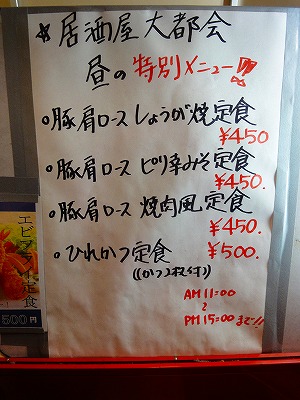 ☆居酒屋大都会
昼の特別メニュー!!
○豚肩ロースしょうが焼定食
¥450
○豚肩ロース ピリ辛みそ定食
¥450.
○豚肩ロース 焼肉風定食
¥450.
○ひれかつ定食 ¥500.
((かつ2枚付))
AM11:00
〜
PM15:00まで!!
エビフライ定食
500円